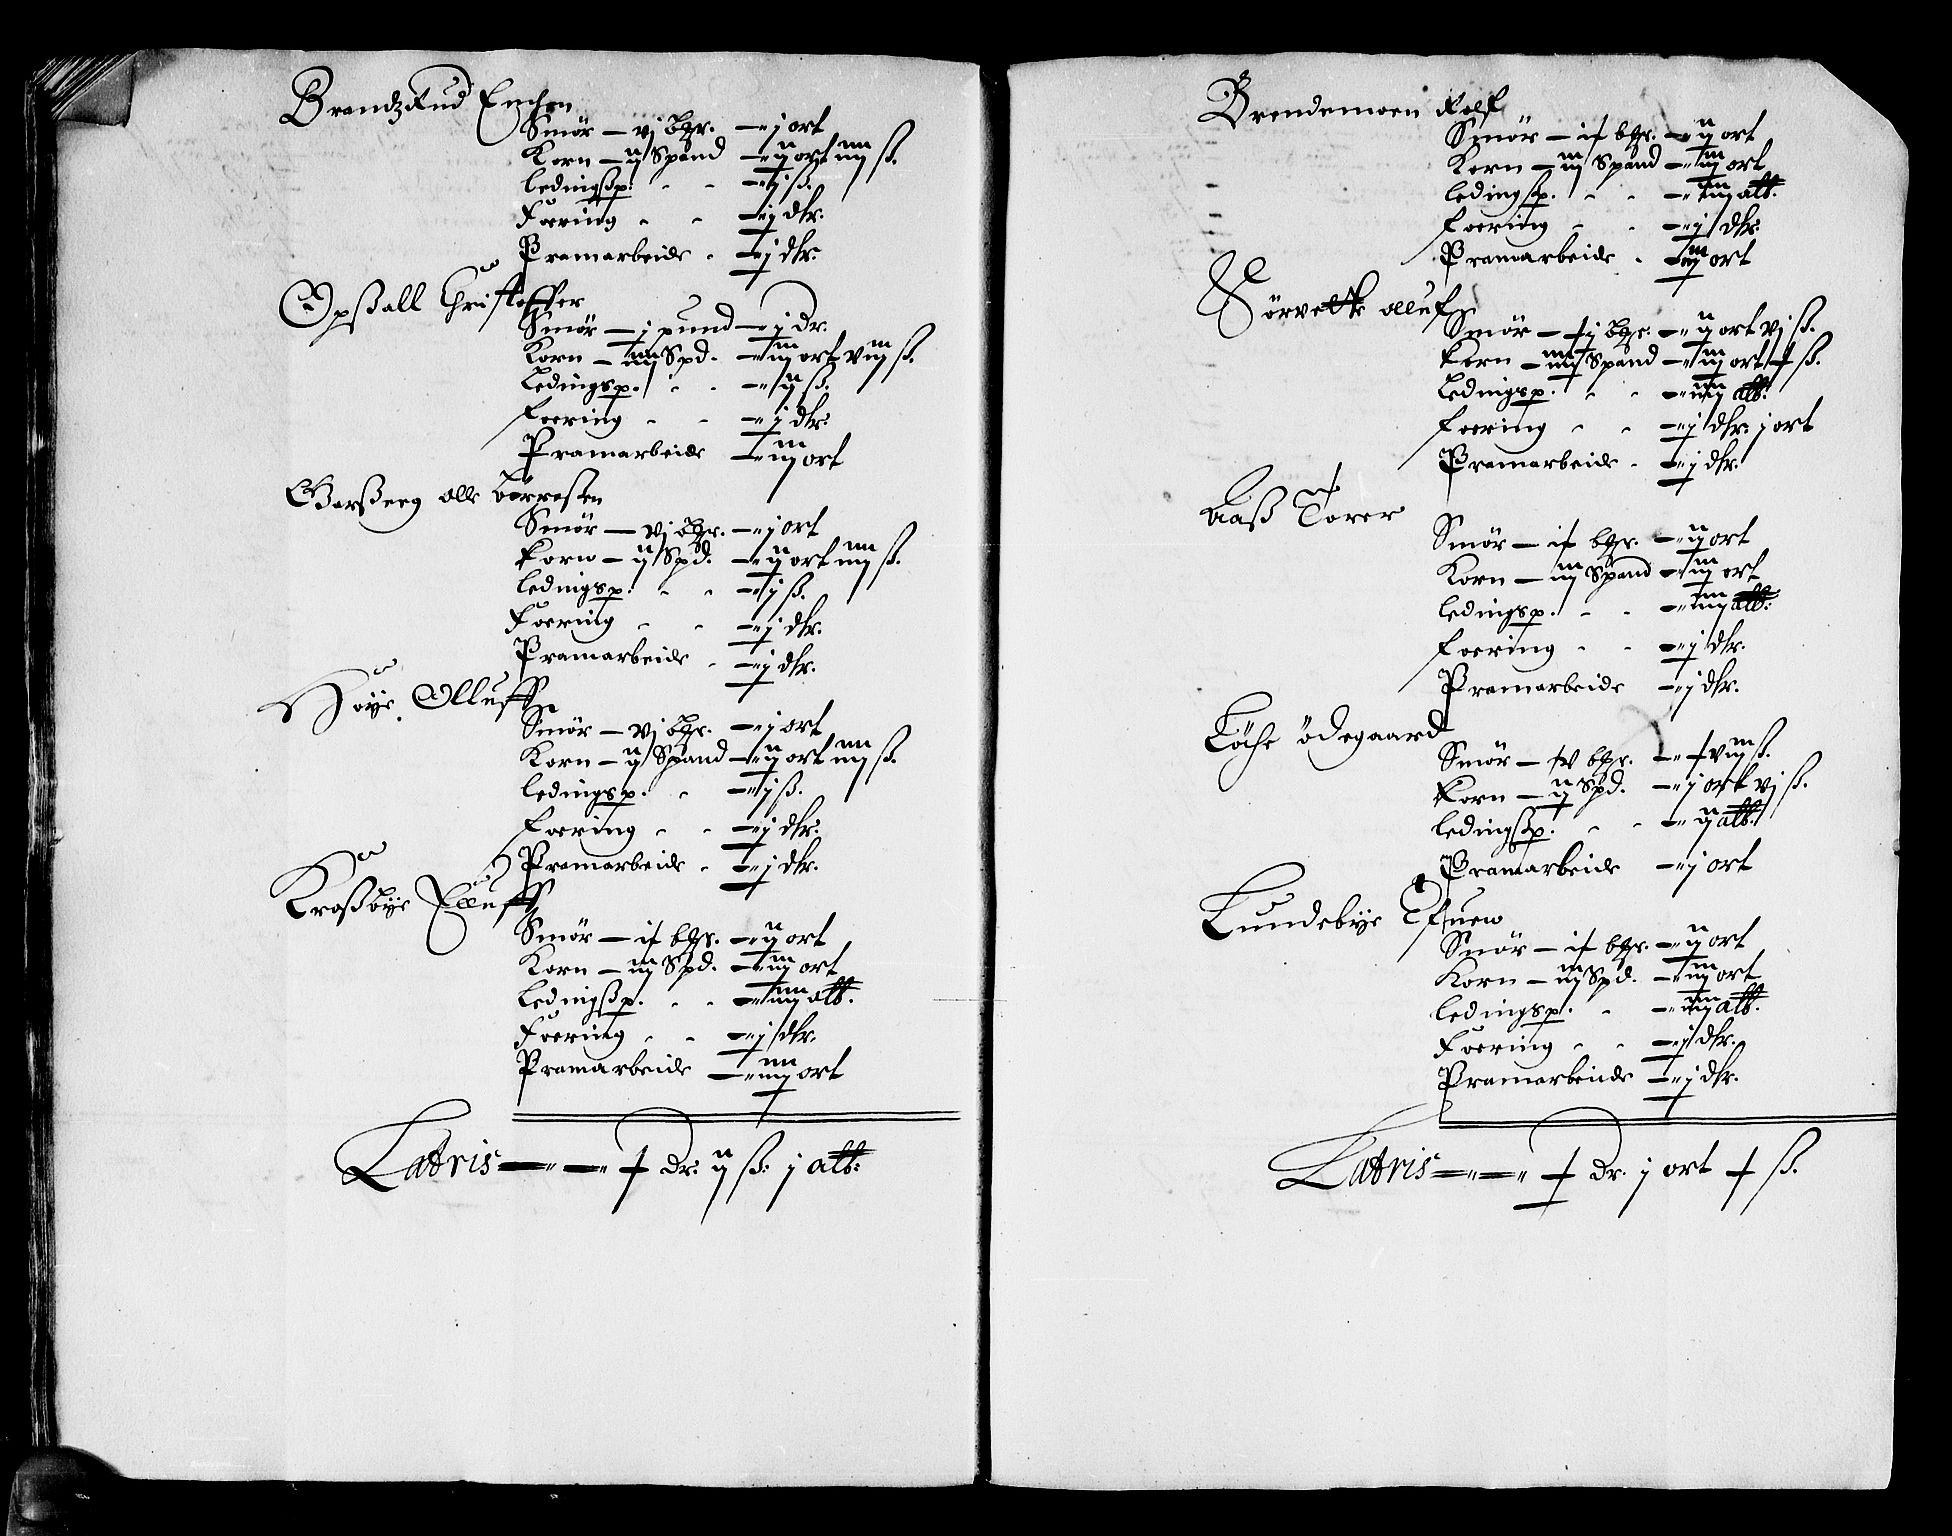 Brandzrud Enchen
Smör — vj bpr. — j ort
Korn — ij Spand — ij ort iiij ß.
Ledingßp. — j ß.
Foering — j dlr.
Pramarbeide — j dlr.
Opßall Christoffer
Smör — j pund — j Dr.
Korn — iiij Spd. — iij ort viij ß.
Ledingsp. — ij ß.
Foering — j dlr.
Pramarbeide — iij ort
olle börresten
Smör — vj bpr. — j ort
Korn — ij Spd. — ij ort iiij ß.
Ledingsp. — j ß.
Foering — j dlr.
Pramarbeide — j dlr.
Höye Olluff
Smör — vj bpr. — j ort
Korn — ij Spand — ij ort iiij ß.
Ledingsp. — j ß.
Foering — j dlr.
Pramarbeide — j dlr.
Kroßbye Elluff
Smör — ix bpr. — ij ort
Korn — iij Spd. — iij ort
Ledingßp. — iiij alb.
Foering — j dlr.
Pramarbeide — iiij ort
Latris — x Dr. ij ß: j alb:
Brendemoen Rolf
Smör — ix bpr. — ij ort
Korn — iij Spand — iij ort
Ledingsp. — iiij alb.
Foering — j dlr.
Pramarbeide — iij ort
Sörvette olluf
Smör — xj bpr. — ij ort vj ß.
Korn — iiij Spand — iij ort x ß.
Ledingsp. — iiij alb.
Foering — j dlr. j ort
Pramarbeide — j dlr.
Aaß Torer
Smör — ix bpr. — ij ort
Korn — iij Spand — iij ort
Ledingsp. — iiij alb:
Foering — j dlr.
Pramarbeide — j dlr.
ödegaard
Smör — bpr. — xviij ß.
Korn — ij Spd. — j ort vj ß.
Ledingßp. — ij alb.
Pramarbeide — j ort
Lundebye
Smör — ix bpr. — ij ort
Korn — iij Spd. — iij ort
Ledingsp. — iiij alb.
Foering — j dlr.
Pramarbeiide — j dlr.
Latris — x Dr. j ort x ß.